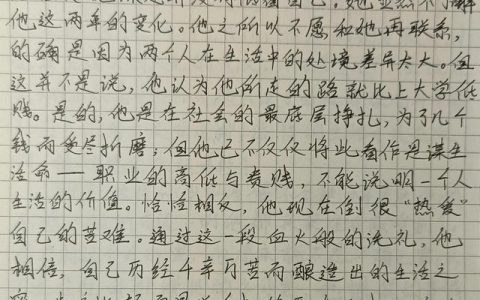 他这两年的变化。他之所以不愿和她再联系,
的确是因为两个人在生活中的处境差异太大。但
这并不是说,他认为他所走的路就比上大学低
贱。是的,他是在社会的最底层挣扎,为了几个
钱而受尽折磨;但他已不仅仅将此看作是谋生
活命——职业的高低与贵贱,不能说明一个人
生活的价值。恰恰相反,他现在倒很“热爱”
自己的苦难。通过这一段血火般的洗礼,他
相信,自己历经千辛万苦而酿造出的生活之